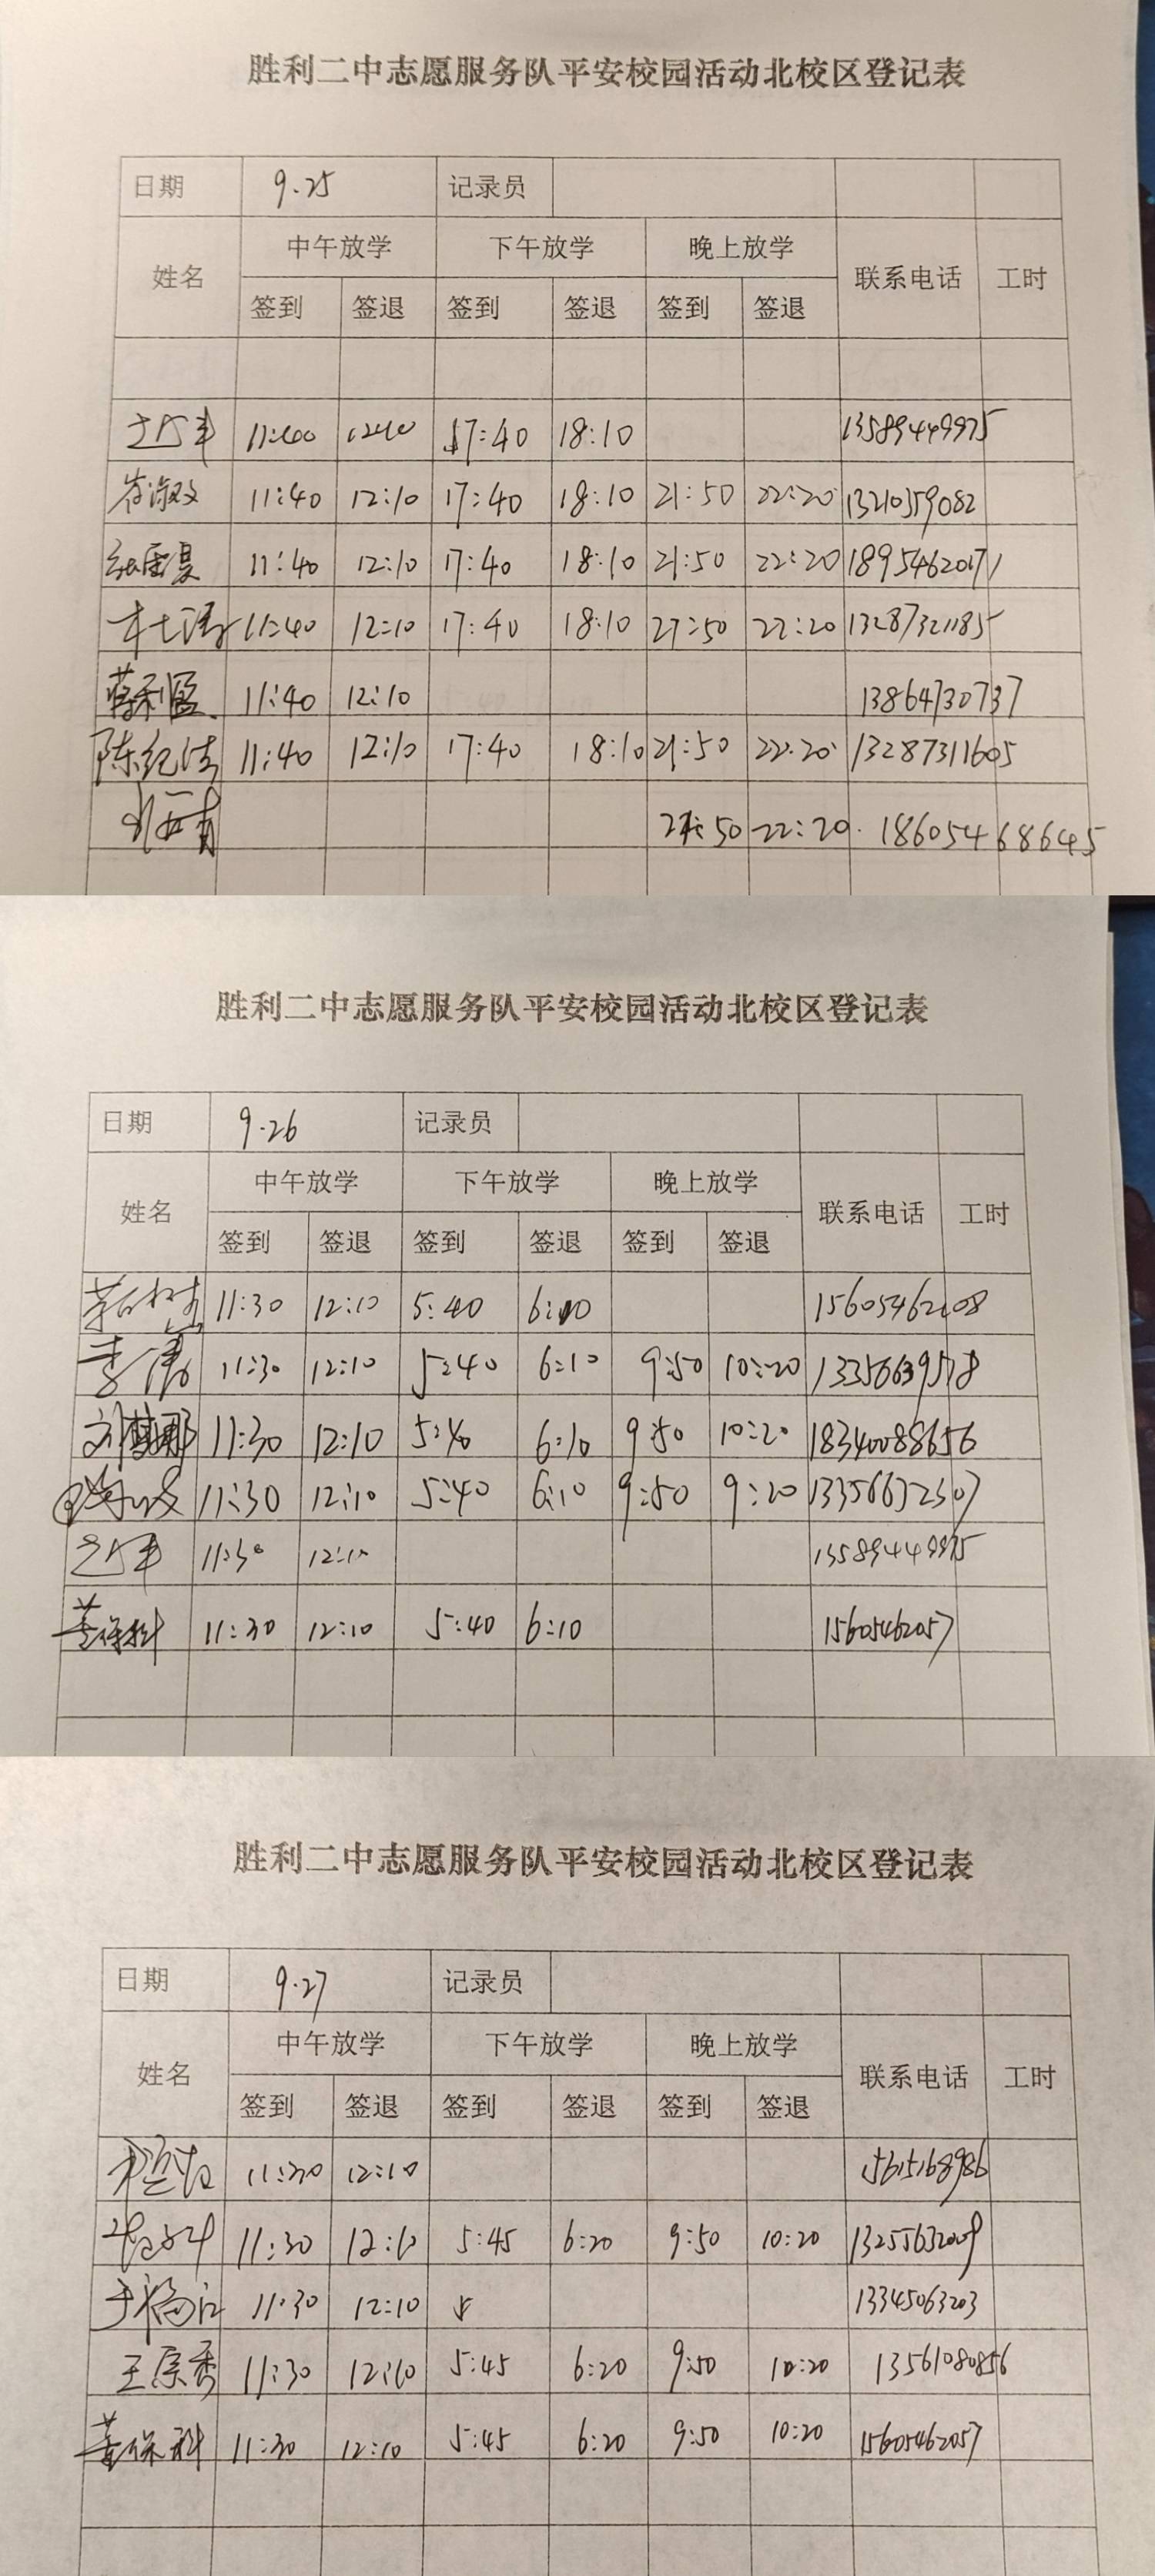 胜利二中志愿服务队平安校园活动北校区登记表
日期 9.25 记录员
中午放学 下午放学 晚上放学
姓名 联系电话 工时
签到 签退 签到 签退 签到 签退
11:40 12:10 17:40 18:10 13589449975
11:40 12:10 17:40 18:10 21:50 22:20 13210359082
11:40 12:10 17:40 18:10 21:50 22:20 18954620171
11:40 12:10 17:40 18:10 21:50 22:20 13287321185
蒋利盈 11:40 12:10 13864730737
陈纪法 11:40 12:10 17:40 18:10 21:50 22:20 13287311605
21:50 22:20 18605468645
胜利二中志愿服务队平安校园活动北校区登记表
日期 9.26 记录员
中午放学 下午放学 晚上放学
姓名 联系电话 工时
签到 签退 签到 签退 签到 签退
11:30 12:10 5:40 6:10 15605462208
11:30 12:10 5:40 6:10 9:50 10:20
11:30 12:10 5:40 6:10 9:50 10:20 18340088656
11:30 12:10 5:40 6:10 9:50 9:20 13356632307
11:30 12:10 13589449975
董保科 11:30 12:10 5:40 6:10 15605462057
胜利二中志愿服务队平安校园活动北校区登记表
日期 9.27 记录员
中午放学 下午放学 晚上放学
姓名 联系电话 工时
签到 签退 签到 签退 签到 签退
11:30 12:10 15615168986
11:30 12:10 5:45 6:20 9:50 10:20 13255632009
于福江 11:30 12:10 5 13345063203
王宗秀 11:30 12:10 5:45 6:20 9:50 10:20 13561080856
董保科 11:30 12:10 5:45 6:20 9:50 10:20 15605462057